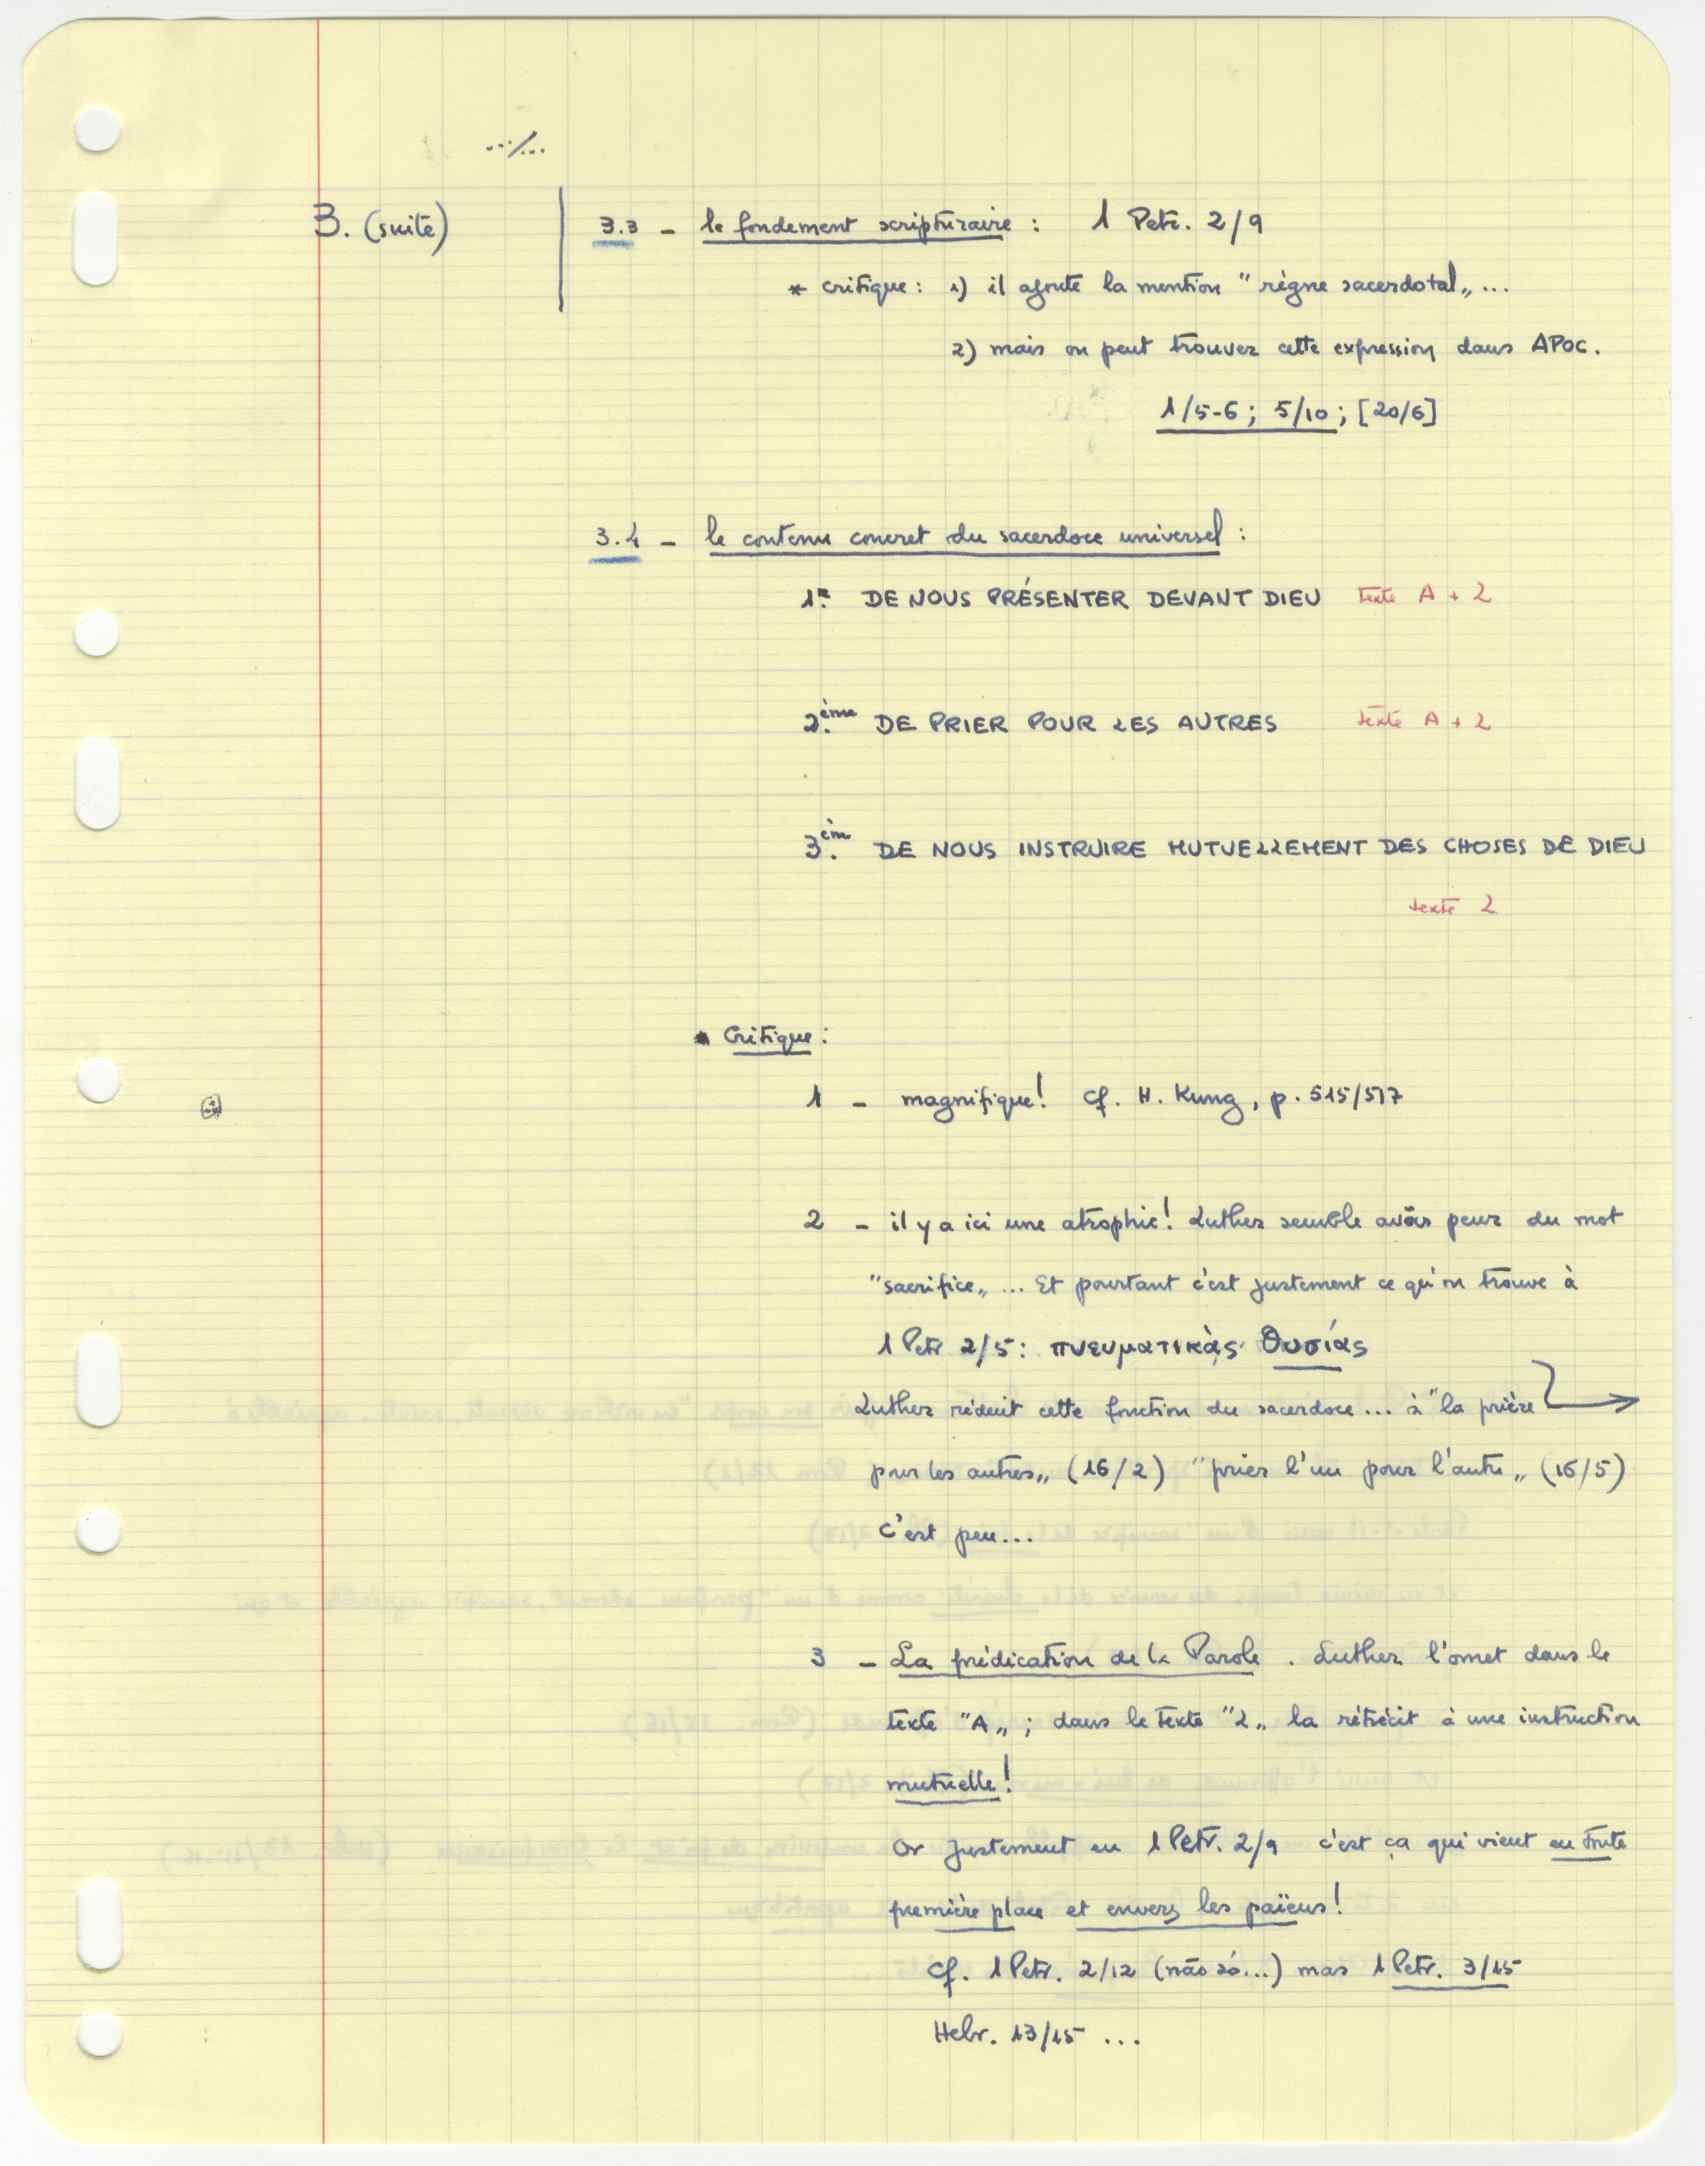 ...⁄...
3. (suite)
3.3 - le fondement scripturaire : 1 Petr. 2/9
* critique : 1) il ajoute la mention "règne sacerdotal„ ...
2) mais on peut trouver cette expression dans APOC.
1/5-6 ; 5/10 ; [20/6]
3.4 - le contenu concret du sacerdoce universel :
DE NOUS PRÉSENTER DEVANT DIEU texte A + 2
2.ème DE PRIER POUR LES AUTRES texte A + 2
3.èm DE NOUS INSTRUIRE MUTUELLEMENT DES CHOSES DE DIEU
texte 2
* Critique :
1 - magnifique! cf. H. Kung, p. 515/517
2 - il y a ici une atrophie! Luther semble avoir peur du mot
"sacrifice„ ... Et pourtant c'est justement ce qu'on trouve à
1 Petr 2/5 : πνευματικὰς θυσίας
Luther réduit cette fonction du sacerdoce ... à "la prière
pour les autres„ (16/2) "prier l'un pour l'autre„ (16/5)
c'est peu...
3 - La prédication de la Parole . Luther l'omet dans le
texte "A„ ; dans le texte "2„ la rétrécit à une instruction
mutuelle!
Or justement en 1 Petr. 2/9 c'est ça qui vient en toute
première place et envers les païens!
cf. 1 Petr. 2/12 (não só...) mas 1 Petr. 3/15
Hebr. 13/15 ...